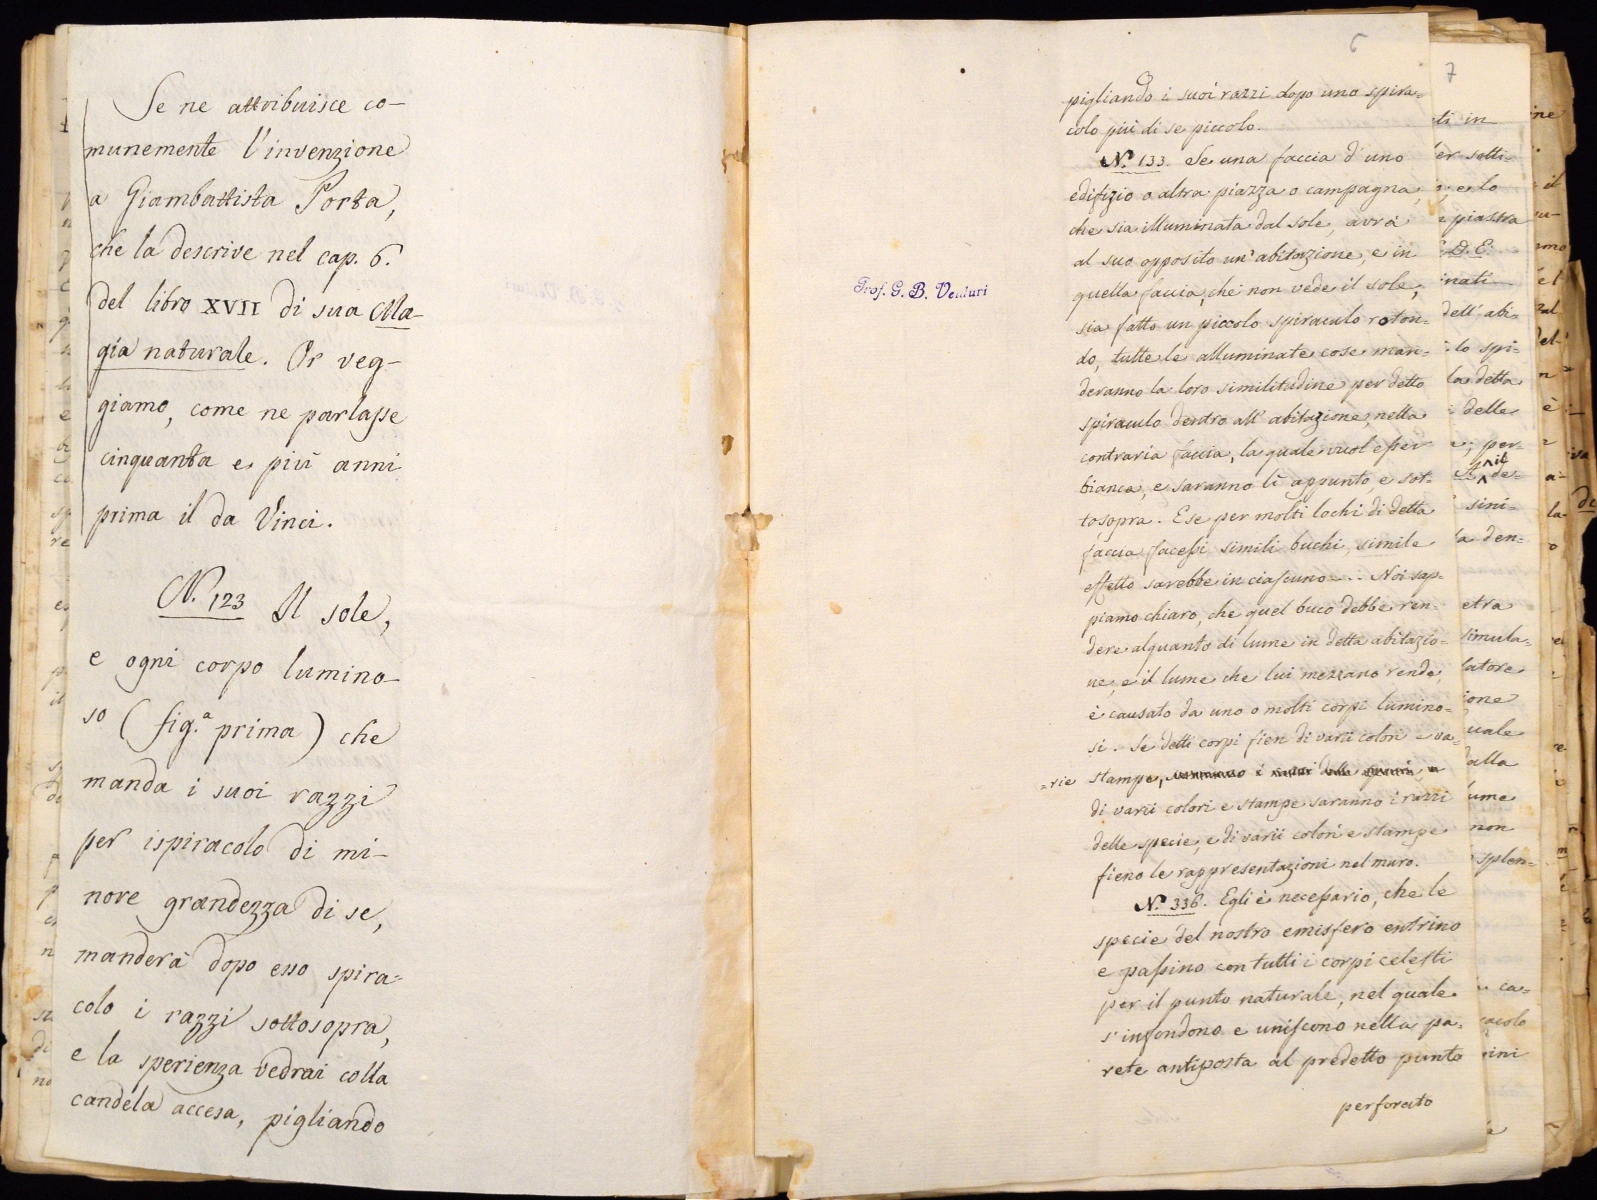 Se ne attribuisce co-
munemente l'invenzione
a Giambattista Porta,
che la descrive nel cap. 6.
del libro XVII di sua Ma-
gia naturale. Or veg-
giamo, come ne parlasse
cinquanta e più anni
prima il da Vinci.
N. 123 Il sole,
e ogni corpo lumino-
so (fig.ª prima) che
manda i suoi razzi
per ispiracolo di mi-
nore grandezza di se,
manderà dopo esso spira=
colo i razzi sottosopra,
e la sperienza vedrai colla
candela accesa, pigliando
Prof. G. B. Venturi
6
pigliando i suoi razzi dopo uno spira=
colo più di se piccolo.
N.º 133. Se una faccia d'uno
edifizio o altra piazza o campagna,
che sia illuminata dal sole, avrà
al suo opposito un'abitazione, e in
quella faccia, che non vede il sole,
sia fatto un piccolo spiraculo roton=
do, tutte le alluminate cose man=
deranno la loro similitudine per detto
spiraculo dentro all'abitazione, nella
contraria faccia, la quale vuol esser
bianca, e saranno lì appunto, e sot=
tosopra. E se per molti lochi di detta
faccia facessi simili buchi, simile
effetto sarebbe in ciascuno... Noi sap=
piamo chiaro, che quel buco debbe ren=
dere alquanto di lume in detta abitazio=
ne, e il lume che lui mezzano rende,
è causato da uno o molti corpi lumino=
si. Se detti corpi fien di varii colori e va=
=rie stampe,
di varii colori e stampe saranno i razzi
delle specie, e di varii colori e stampe
fieno le rappresentazioni nel muro.
N.º 336. Egli è necessario, che le
specie del nostro emisfero entrino
e passino con tutti i corpi celesti
per il punto naturale, nel quale
s'infondono e uniscono nella pa=
rete antiposta al predetto punto
perforato
7
ti in
er sotti=
e lo
piastra
D. E.
nati
dell'abi=
lo spi=
la detta
delle
e; per=
il
des=
simi=
a den=
etra
simula=
latore
ione
uale
dalla
lume
non
splen=
ca=
racolo